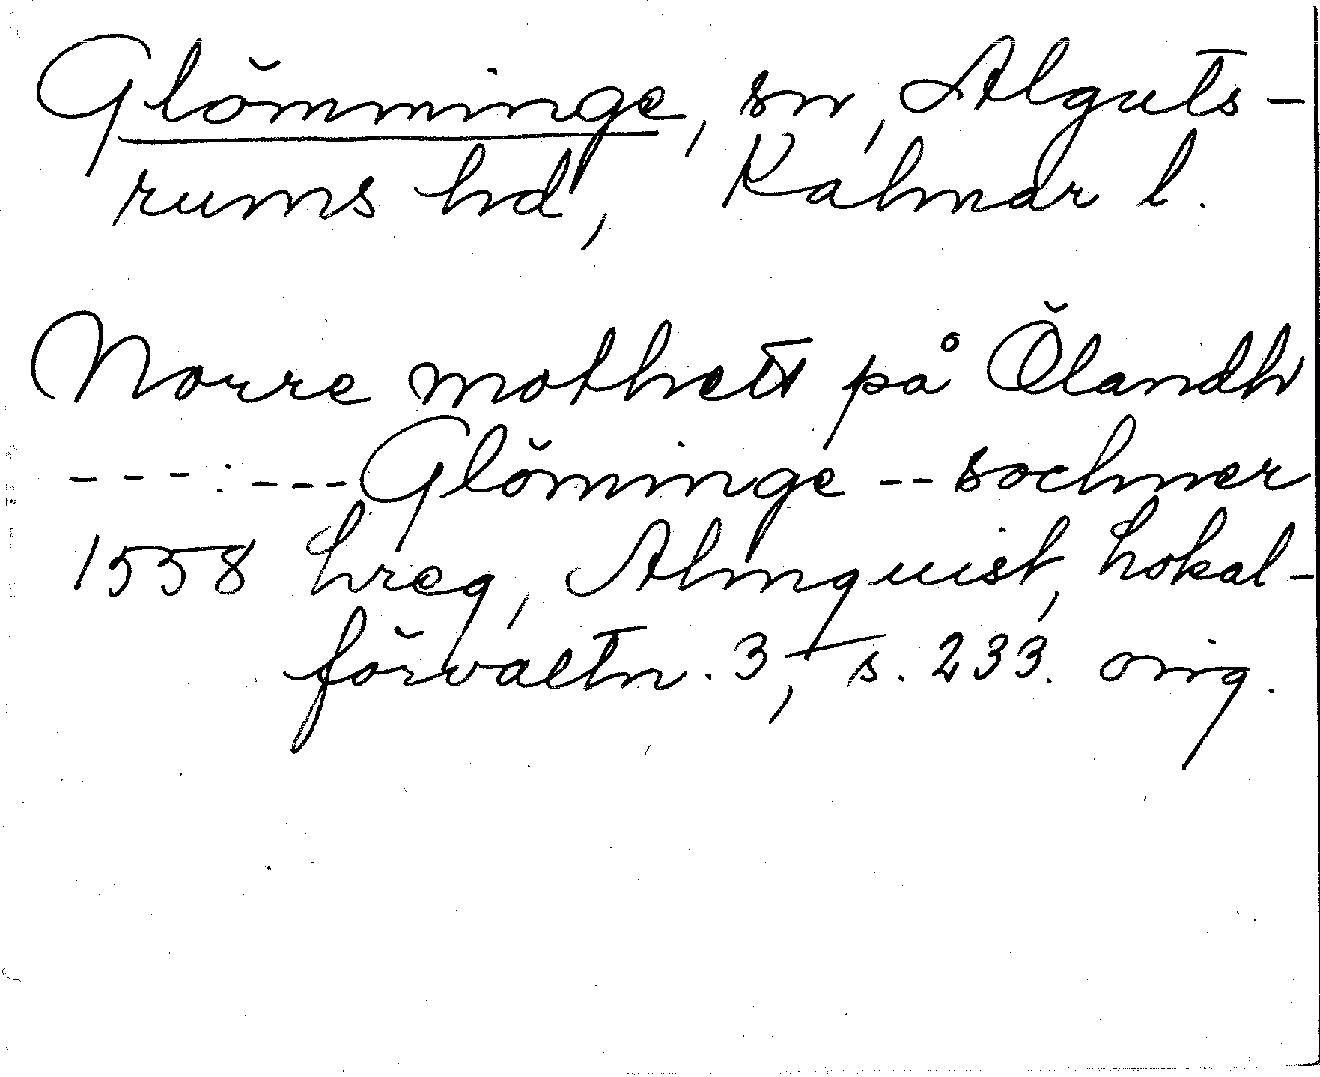 Glömminge, sn, Alguts-
rums hd, Kalmar l.
Norre mothett på Ölandh
---:---Glöminge -- sochner
1558 hreg, Almquist, Lokal-
förvaltn. 3, s. 233. orig.